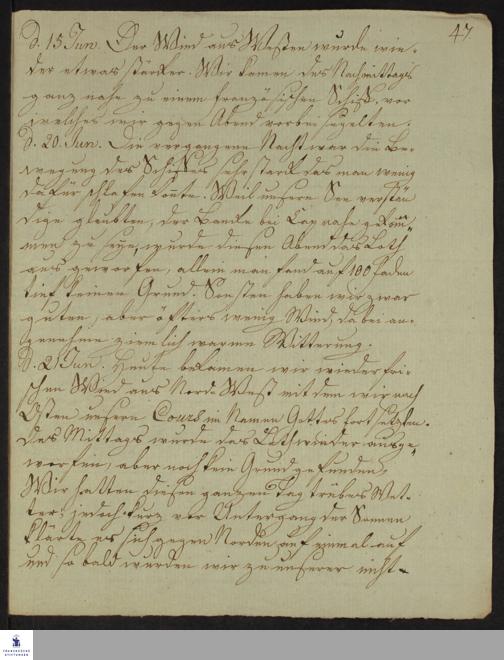 47
d. 15 Jun. Der Wind aus Westen wurde wie-
der etwas stärker. Wir kamen des Nachmittags
ganz nahe zu einem französischen Schiff, vor
welches wir gegen Abend vorbei seegelten.
d. 20. Jun. Die vergangene Nacht war die Be-
wegung des Schiffes sehr stark das man wenig
dafür schlafen konte. Weil unsere See verstän
dige glaubten, der Bancke bei Cap nahe gekom-
men zu seyn, wurde diesen Abend das Loth
ausgeworfen, allein man fand auf 100 Faden
tief keinen Grund. Sonsten haben wir zwar
guten, aber öfters wenig Wind, dabei an-
genehme ziemlich warme Witterung.
d. 21 Jun. Heute bekamen wir wieder fri-
schen Wind aus Nord-West mit dem wir nach
Osten unsern Cours im Namen Gottes fortsetzten.
Des Mittags wurde das Loth wieder ausge-
worfen, aber noch kein Grund gefunden,
Wir hatten diesen ganzen Tag trübes Wet-
ter, jedoch kurz vor Untergang der Sonnen
klärte es sich gegen Norden auf einmal auf
und so bald wurden wir zu unserer nicht-
FRANCKESCHE
STIFTUNGEN